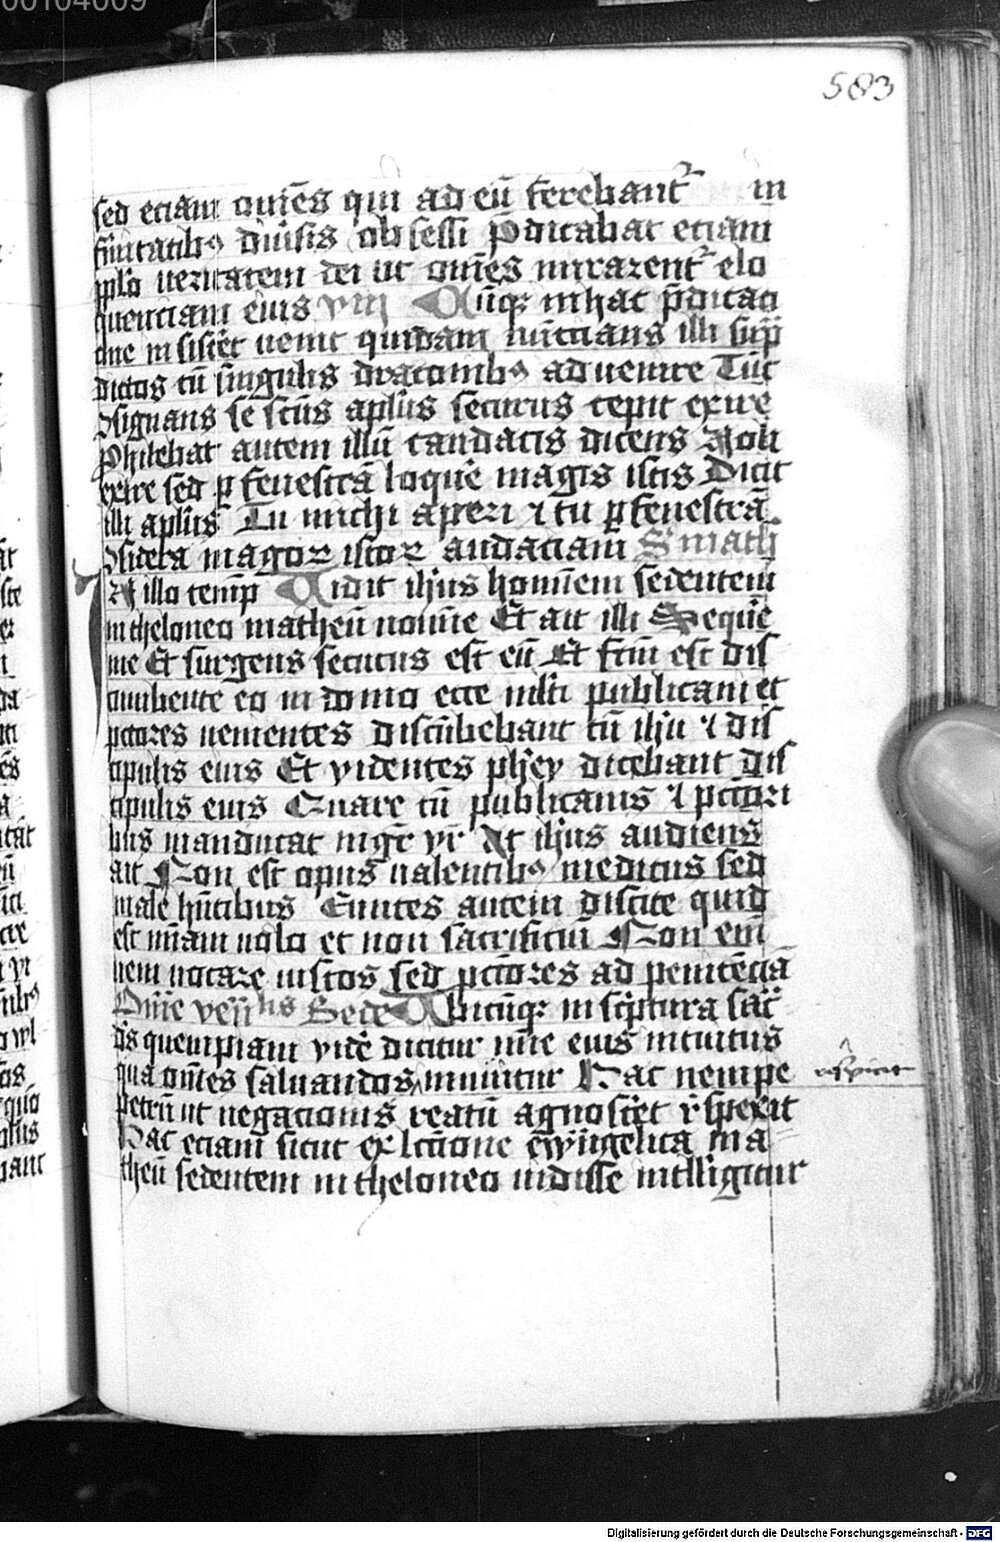 00104009
583
sed eciam om̄es qui ad eū ferebant᷑ in
firmitatibꝯ diuisis obsessi p̄dicabat eciam
pplō ueritatem dei ut om̄es mirarent᷑ elo
quenciam eius viii Cūqꝫ in hac p̄dicaci
one insistēt uenit quidam nūccians illi sup̄
dictos cū singulis draconibꝯ aduenire Tūc
ꝯsignans se scūs aplūs securus cepit exire
Phibebat autem illū candacis dicens Noli
exire sed ꝑ fenestrā loquē magis istis Dicit
illi aplūs Tu michi aperi ⁊ tu ꝑ fenestrā
ꝯsidera magoꝝ istoꝝ audaciam S math
In illo temp̄ Vidit ihūs hominem sedentem
in theloneo matheū nomīe Et ait illi Sequē
me Et surgens secutus est eū Et fcm̄ est dis
cumbente eo in domo ecce mlti publicani et
pctōres uenientes discūbebant cū ihū ⁊ dis
cipulis eius Et videntes phey dicebant dis
cipulis eius Quare cū publicanis ⁊ pctōri
bus manducat mgr̄ vr̄ At ihūs audiens
ait Non est opus ualentibꝯ medicus sed
male hn̄tibus Euntes autem discite quid
est miam uolo et non sacrificiū Non em̄
ueni uocare iustos sed pctōres ad penitēciā
Om̄e ven̄lis Bede Vbicūqꝫ in scptura sac̄
dn̄s quempiam videē dicitur nuē eius intuitus
qua om̄es saluandos inuitur Hac nempe respicere
petrū ut negacionis reatū agnoscēt r̄spexit
Hac eciam sicut ex lcūone ewāngelica ma
theū sedentem in theloneo uidisse intelligitur
Digitalisierung gefördert durch die Deutsche Forschungsgemeinschaft - DFG